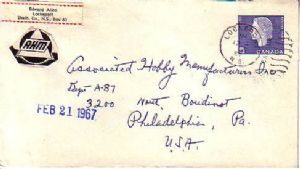 Edward Allen
Lockeport
Shelb. Co., N.S., Box 61
AHM
LOC
N.S.
CANADA
5
Associated Hobby Manufacturers Inc
Dept A-87
3200 North Boudinot
FEB 21 1967
Philadelphia, Pa.
U.S.A.